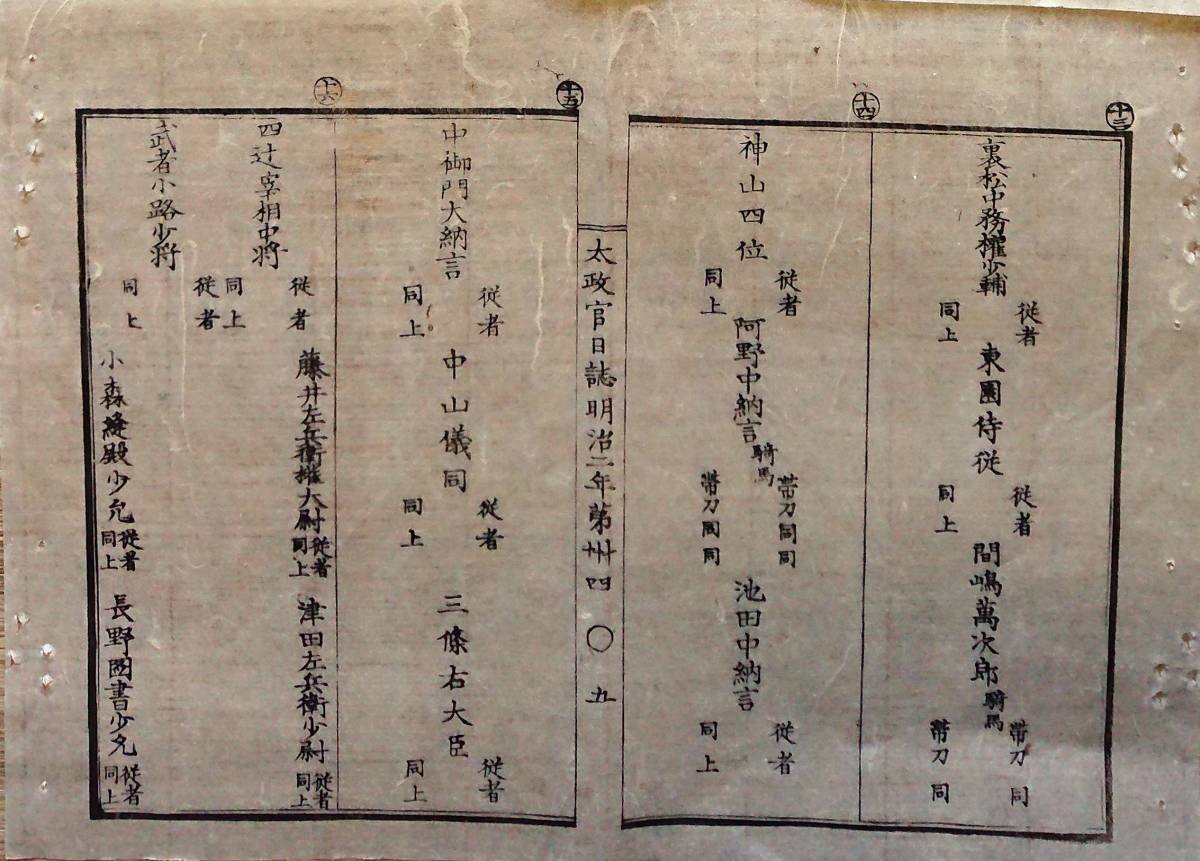 十三
裏松中務權少輔
従者
同上
東園侍従
従者
同上
間嶋萬次郎
騎馬
帯刀同
帯刀同
十四
神山四位
従者
同上
阿野中納言
騎馬
帯刀同同
帯刀同同
池田中納言
従者
同上
太政官日誌明治二年第卅四〇五
十五
中御門大納言
従者
同上
中山儀同
従者
同上
三條右大臣
従者
同上
十六
四辻宰相中将
従者
同上
藤井左兵衛權大尉
従者
同上
津田左兵衛少尉
従者
同上
武者小路少将
従者
同上
小森縫殿少允
従者
同上
長野圖書少允
従者
同上